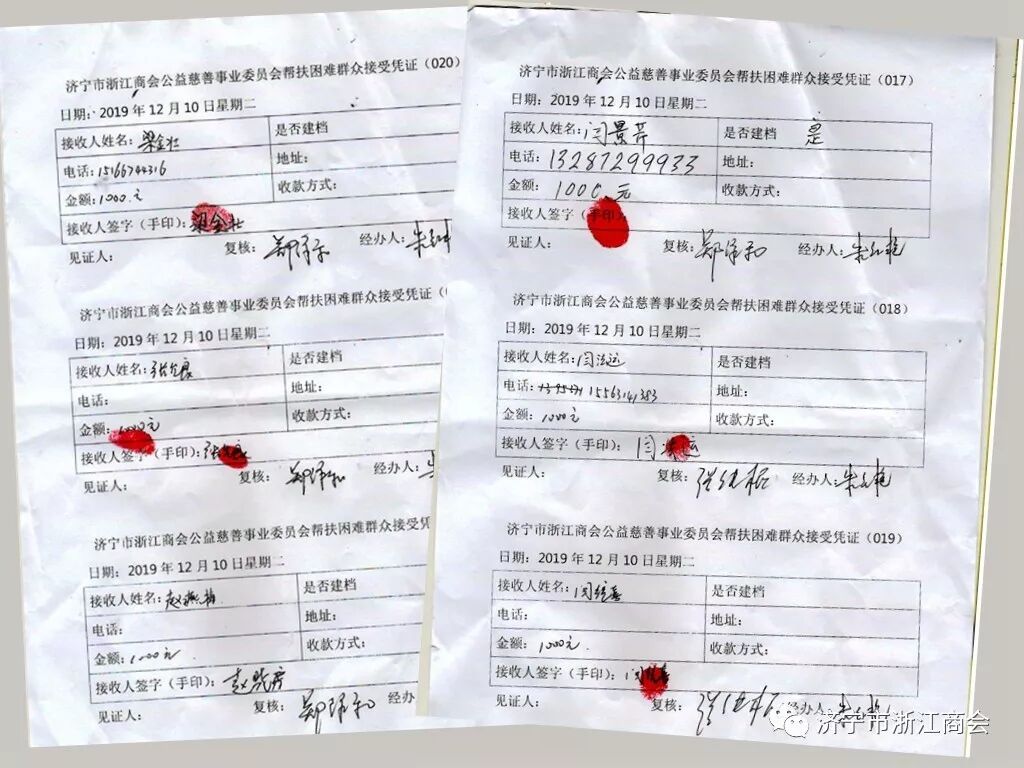 济宁市浙江商会公益慈善事业委员会帮扶困难群众接受凭证（020）
日期：2019 年 12 月 10 日星期二
接收人姓名：梁金壮 是否建档
电话：15166744316 地址：
金额：1000.元 收款方式：
接收人签字（手印）：梁金壮
见证人： 复核： 郑泽和 经办人：
济宁市浙江商会公益慈善事业委员会帮扶困难群众接受凭证（
日期：2019 年 12 月 10 日星期二
接收人姓名： 是否建档
电话： 地址：
金额：1000元 收款方式：
接收人签字（手印）：
见证人： 复核： 郑泽和 经办人：
济宁市浙江商会公益慈善事业委员会帮扶困难群众接受凭
日期：2019 年 12 月 10 日星期二
接收人姓名： 是否建档
电话： 地址：
金额：1000元 收款方式：
接收人签字（手印）：
见证人： 复核： 郑泽和 经办
济宁市浙江商会公益慈善事业委员会帮扶困难群众接受凭证（017）
日期：2019 年 12 月 10 日星期二
接收人姓名：闫景芹 是否建档 是
电话：13287299933 地址：
金额：1000元 收款方式：
接收人签字（手印）：
见证人： 复核： 郑泽和 经办人：
济宁市浙江商会公益慈善事业委员会帮扶困难群众接受凭证（018）
日期：2019 年 12 月 10 日星期二
接收人姓名：闫法运 是否建档
电话：15563141383 地址：
金额：1000元 收款方式：
接收人签字（手印）：闫
见证人： 复核： 经办人：
济宁市浙江商会公益慈善事业委员会帮扶困难群众接受凭证（019）
日期：2019 年 12 月 10 日星期二
接收人姓名： 是否建档
电话： 地址：
金额：1000元 收款方式：
接收人签字（手印）：
见证人： 复核： 经办人：
济宁市浙江商会